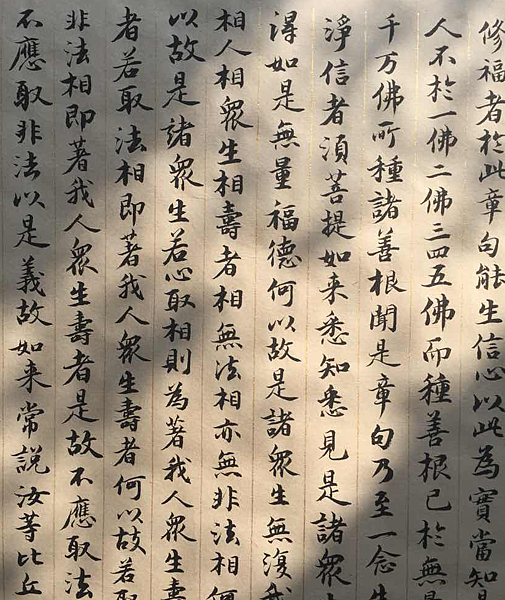 修福者於此章句能生信心以此為實當知
人不於一佛二佛三四五佛而種善根已於無
千万佛所種諸善根聞是章句乃至一念生
淨信者須菩提如来悉知悉見是諸衆
得如是無量福德何以故是諸衆生無復我
相人相衆生相壽者相無法相亦無非法相何
以故是諸衆生若心取相則為著我人衆生壽
者若取法相即著我人衆生壽者何以故若取
非法相即著我人衆生壽者是故不應取法
不應取非法以是義故如来常說汝等比丘